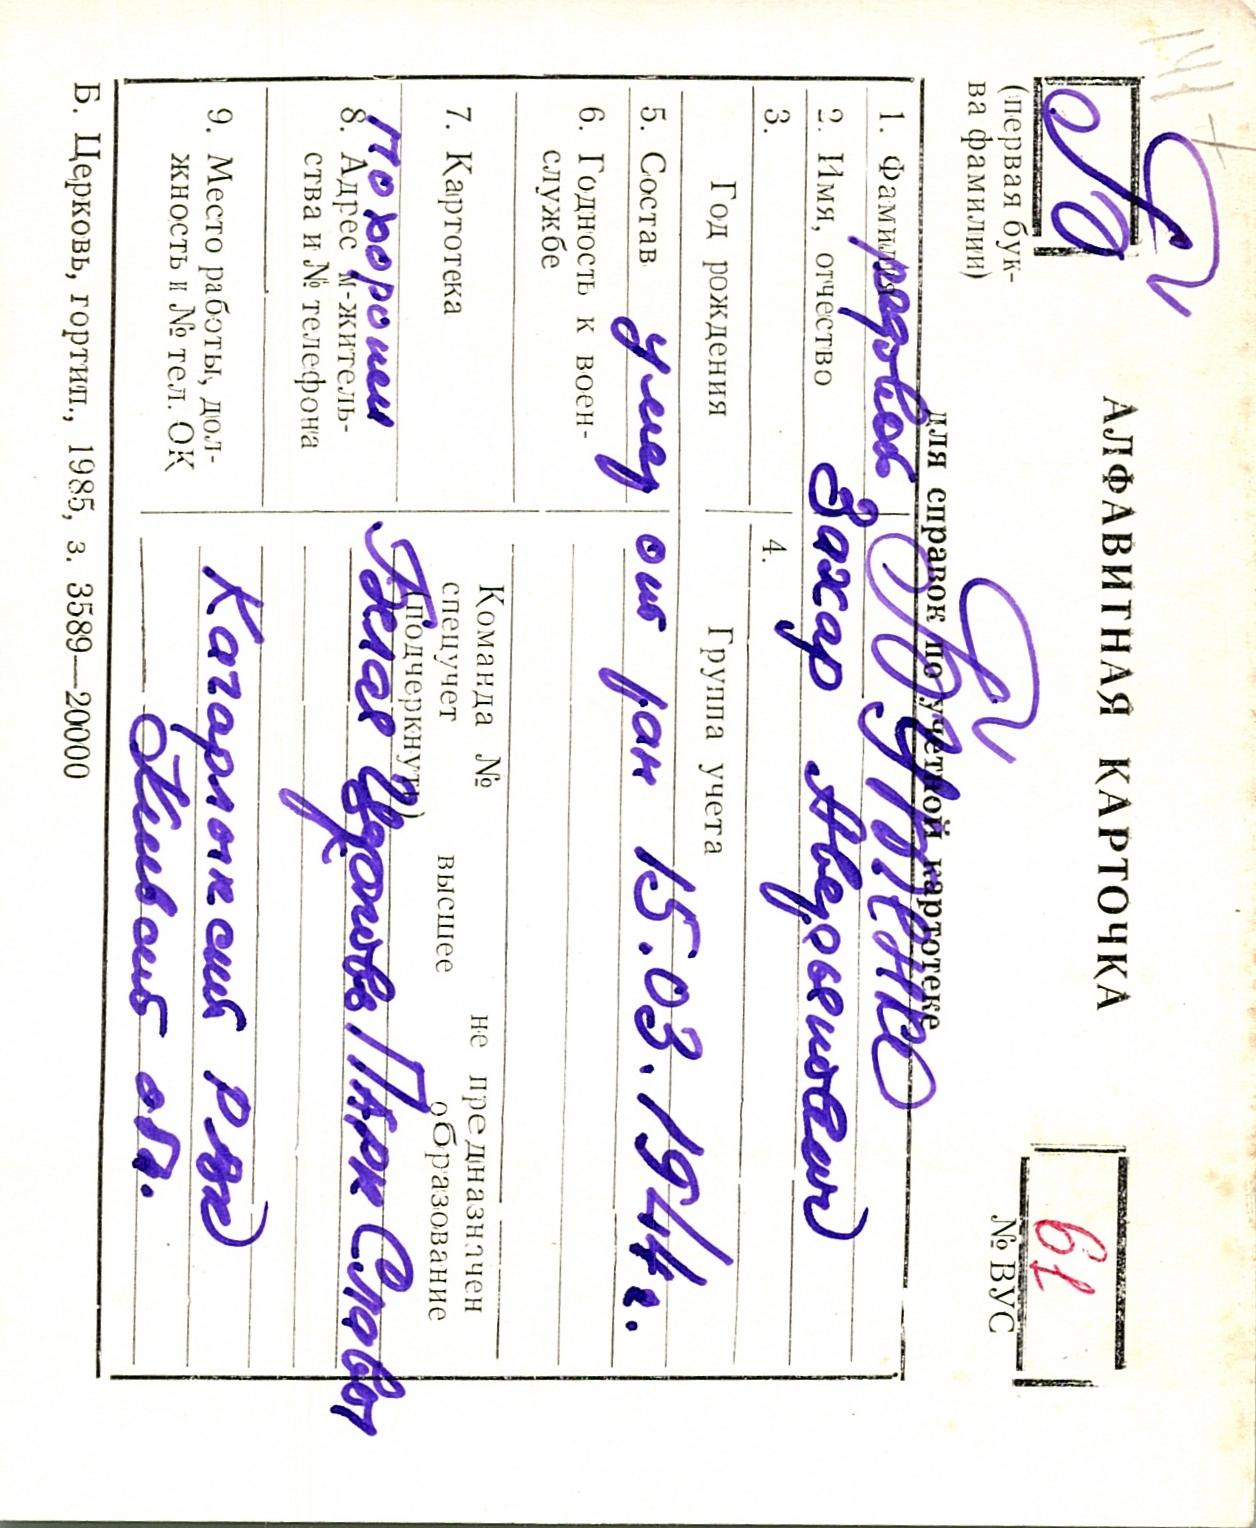 АЛФАВИТНАЯ КАРТОЧКА
для справок по учетной картотеке
(первая бук-
ва фамилии)
61
№ ВУС
1. Фамилия
рядовой
2. Имя, отчество
Захар
3.
4.
Год рождения
Группа учета
5. Состав
умер от ран 15.03.1944г.
6. Годность к воен-
службе
7. Картотека
Команда № не предназначен
спецучет высшее образование
(подчеркнуть)
Похоронен
Белая Церковь Парк Славы
8. Адрес м-житель-
ства и № телефона
9. Место работы, дол-
жность и № тел. ОК
Кагарлыкский РВК
Киевской обл.
Б. Церковь, гортип., 1985, з. 3589—20000